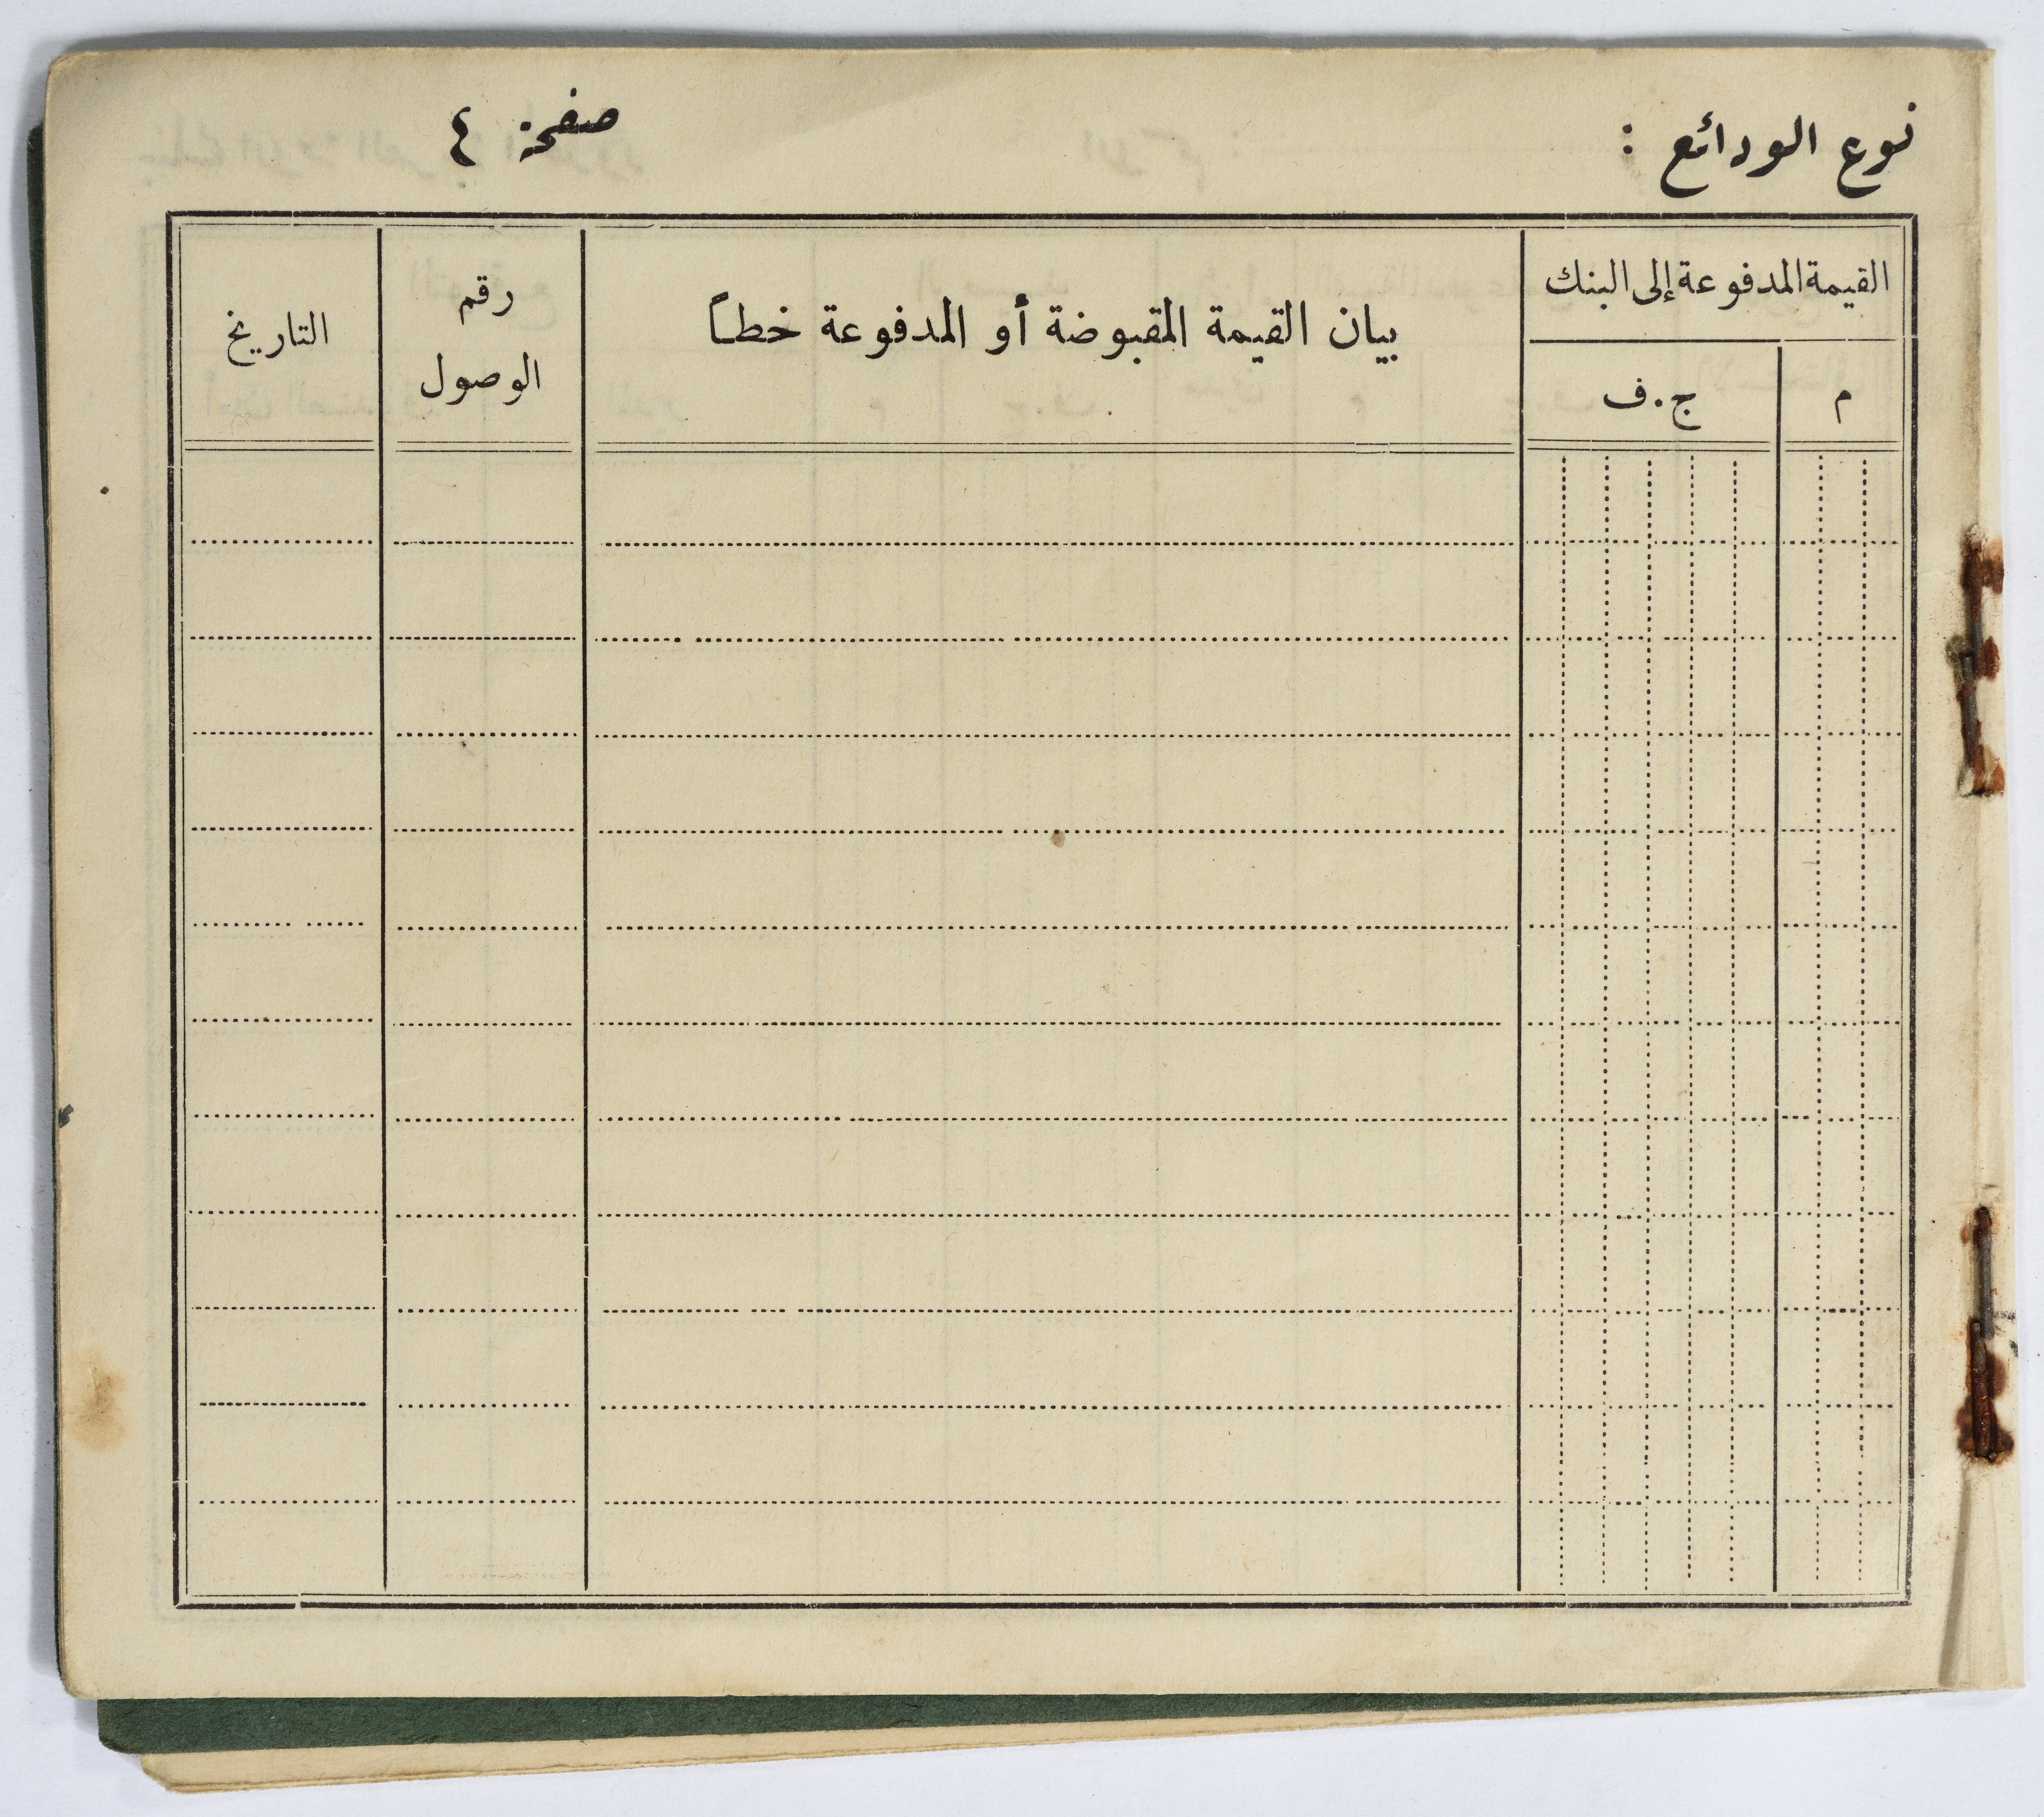 نوع الودائع :
صفحة ٤
القيمة المدفوعة إلى البنك
م
ج . ف
بيان القيمة المقبوضة أو المدفوعة خطاً
رقم
الوصول
التاريخ